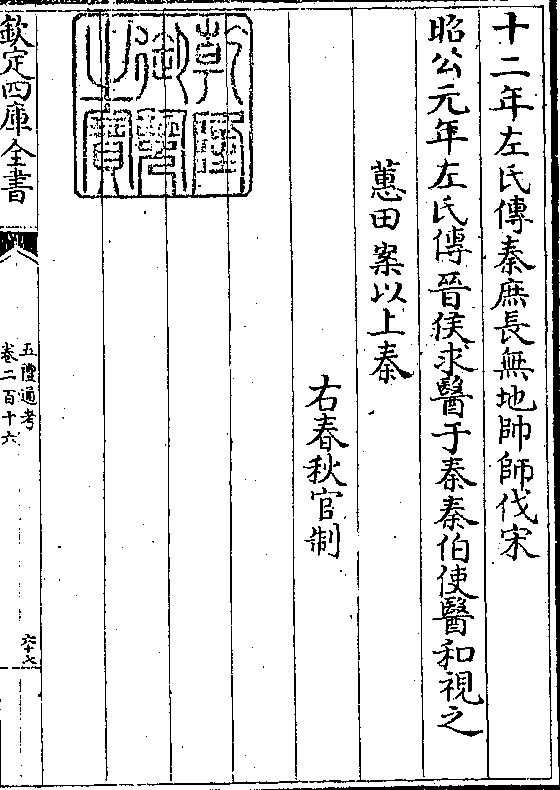 十二年左氏傳秦庶長無地帥師伐宋
昭公元年左氏傳晉侯求醫于秦秦伯使醫和視之
蕙田案以上秦
右春秋官制
乾隆御覽之寶
欽定四庫全書
五禮通考
卷二百十六